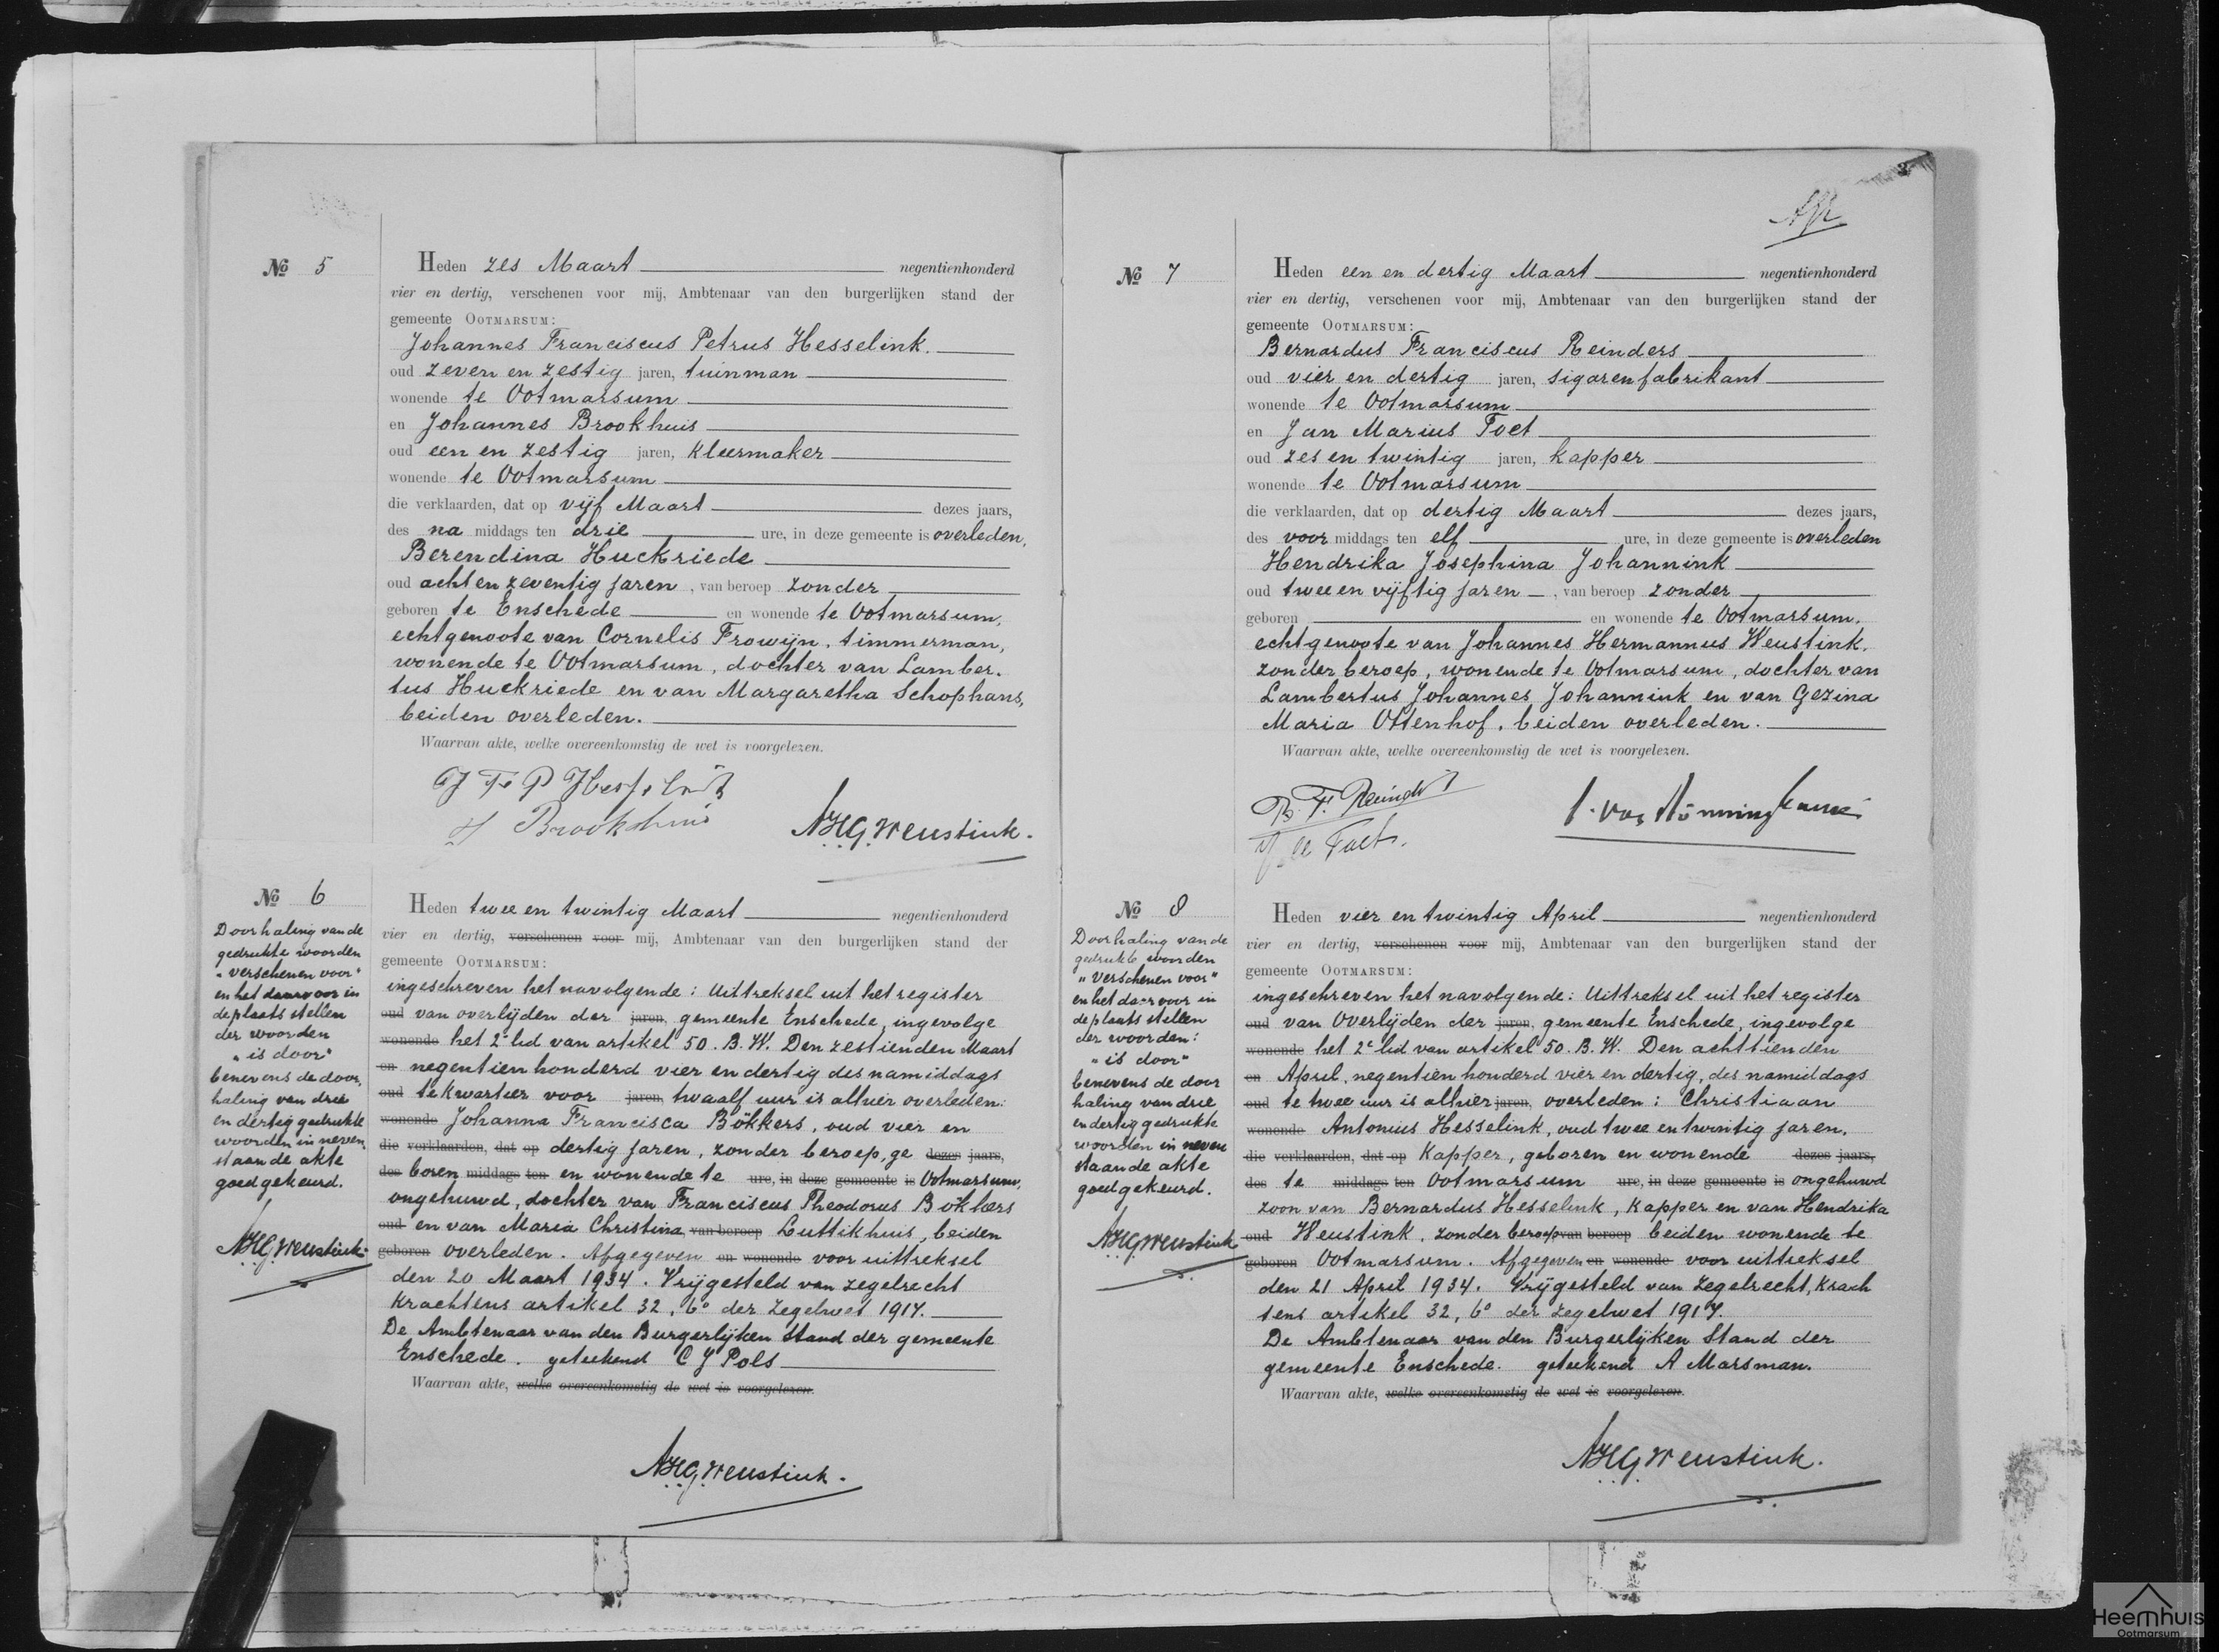 № 5
Heden zes Maart negentienhonderd
vier en dertig, verschenen voor mij, Ambtenaar van den burgerlijken stand der
gemeente OOTMARSUM:
Johannes Franciscus Petrus Hesselink.
oud zeven en zestig jaren, tuinman
wonende te Ootmarsum
en Johannes Brookhuis
oud een en zestig jaren, kleermaker
wonende te Ootmarsum
die verklaarden, dat op vijf Maart dezes jaars,
des na middags ten drie ure, in deze gemeente is overleden,
Berendina Huckriede
oud acht en zeventig jaren, van beroep zonder
geboren te Enschede en wonende te Ootmarsum,
echtgenoote van Cornelis Frowijn, timmerman,
wonende te Ootmarsum, dochter van Lamber.
tus Huckriede en van Margaretha Schophans,
beiden overleden.
Waarvan akte, welke overeenkomstig de wet is voorgelezen.
J F P Hesselink
J Brookhuis
AHG Weustink.
№ 6
Doorhaling van de
gedrukte woorden
"verschenen voor"
en het daarvoor in
de plaats stellen
der woorden
"is door"
benevens de door,
haling van drie
en dertig gedrukte
woorden in neven,
staande akte
goedgekeurd.
AHG Weustink.
Heden twee en twintig Maart negentienhonderd
vier en dertig, verschenen voor mij, Ambtenaar van den burgerlijken stand der
gemeente OOTMARSUM:
ingeschreven het navolgende: Uittreksel uit het register
oud van overlijden der jaren, gemeente Enschede, ingevolge
wonende het 2e lid van artikel 50. B. W. Den zestienden Maart
en negentienhonderd vier en dertig des namiddags
oud te kwartier voor jaren, twaalf uur is alhier overleden:
wonende Johanna Francisca Bökkers, oud vier en
die verklaarden, dat op dertig jaren, zonder beroep, ge dezes jaars,
des boren middags ten en wonende te ure, in deze gemeente is Ootmarsum,
ongehuwd, dochter van Franciscus Theodorus Bökkers
oud en van Maria Christina van beroep Luttikhuis, beiden
geboren overleden. Afgegeven en wonende voor uittreksel
den 20 Maart 1934. Vrijgesteld van zegelrecht
krachtens artikel 32, 6o der Zegelwet 1917.
De Ambtenaar van den Burgerlijken Stand der gemeente
Enschede. geteekend C J Pols
Waarvan akte, welke overeenkomstig de wet is voorgelezen.
AHG Weustink.
3
№ 7
Heden een en dertig Maart negentienhonderd
vier en dertig, verschenen voor mij, Ambtenaar van den burgerlijken stand der
gemeente OOTMARSUM:
Bernardus Franciscus Reinders
oud vier en dertig jaren, sigarenfabrikant
wonende te Ootmarsum
en Jan Marius Toet
oud zes en twintig jaren, kapper
wonende te Ootmarsum
die verklaarden, dat op dertig Maart dezes jaars,
des voor middags ten elf ure, in deze gemeente is overleden
Hendrika Josephina Johannink
oud twee en vijftig jaren, van beroep zonder
geboren en wonende te Ootmarsum.
echtgenoote van Johannes Hermannus Weustink.
zonder beroep, wonende te Ootmarsum, dochter van
Lambertus Johannes Johannink en van Gezina
Maria Ottenhof, beiden overleden.
Waarvan akte, welke overeenkomstig de wet is voorgelezen.
B. F. Reinders
Toet.
№ 8
Doorhaling van de
gedrukte woorden
"verschenen voor"
en het daarvoor in
de plaats stellen
der woorden:
"is door"
benevens de door
haling van drie
en dertig gedrukte
woorden in neven
staande akte
goedgekeurd.
AHG Weustink
Heden vier en twintig April negentienhonderd
vier en dertig, verschenen voor mij, Ambtenaar van den burgerlijken stand der
gemeente OOTMARSUM:
ingeschreven het navolgende: Uittreksel uit het register
oud van Overlijden der jaren, gemeente Enschede, ingevolge
wonende het 2e lid van artikel 50. B. W. Den achttienden
en April, negentienhonderd vier en dertig, des namiddags
oud te twee uur is alhier jaren, overleden: Christiaan
wonende Antonius Hesselink, oud twee en twintig jaren,
die verklaarden, dat op Kapper, geboren en wonende dezes jaars,
des te middags ten Ootmarsum ure, in deze gemeente is ongehuwd
zoon van Bernardus Hesselink, Kapper en van Hendrika
oud Weustink, zonder beroep van beroep beiden wonende te
geboren Ootmarsum. Afgegeven en wonende voor uittreksel
den 21 April 1934. Vrijgesteld van Zegelrecht, krach
tens artikel 32, 6o der zegelwet 1917.
De Ambtenaar van den Burgerlijken Stand der
gemeente Enschede. geteekend A Marsman.
Waarvan akte, welke overeenkomstig de wet is voorgelezen.
AHG Weustink.
Heemhuis
Ootmarsum